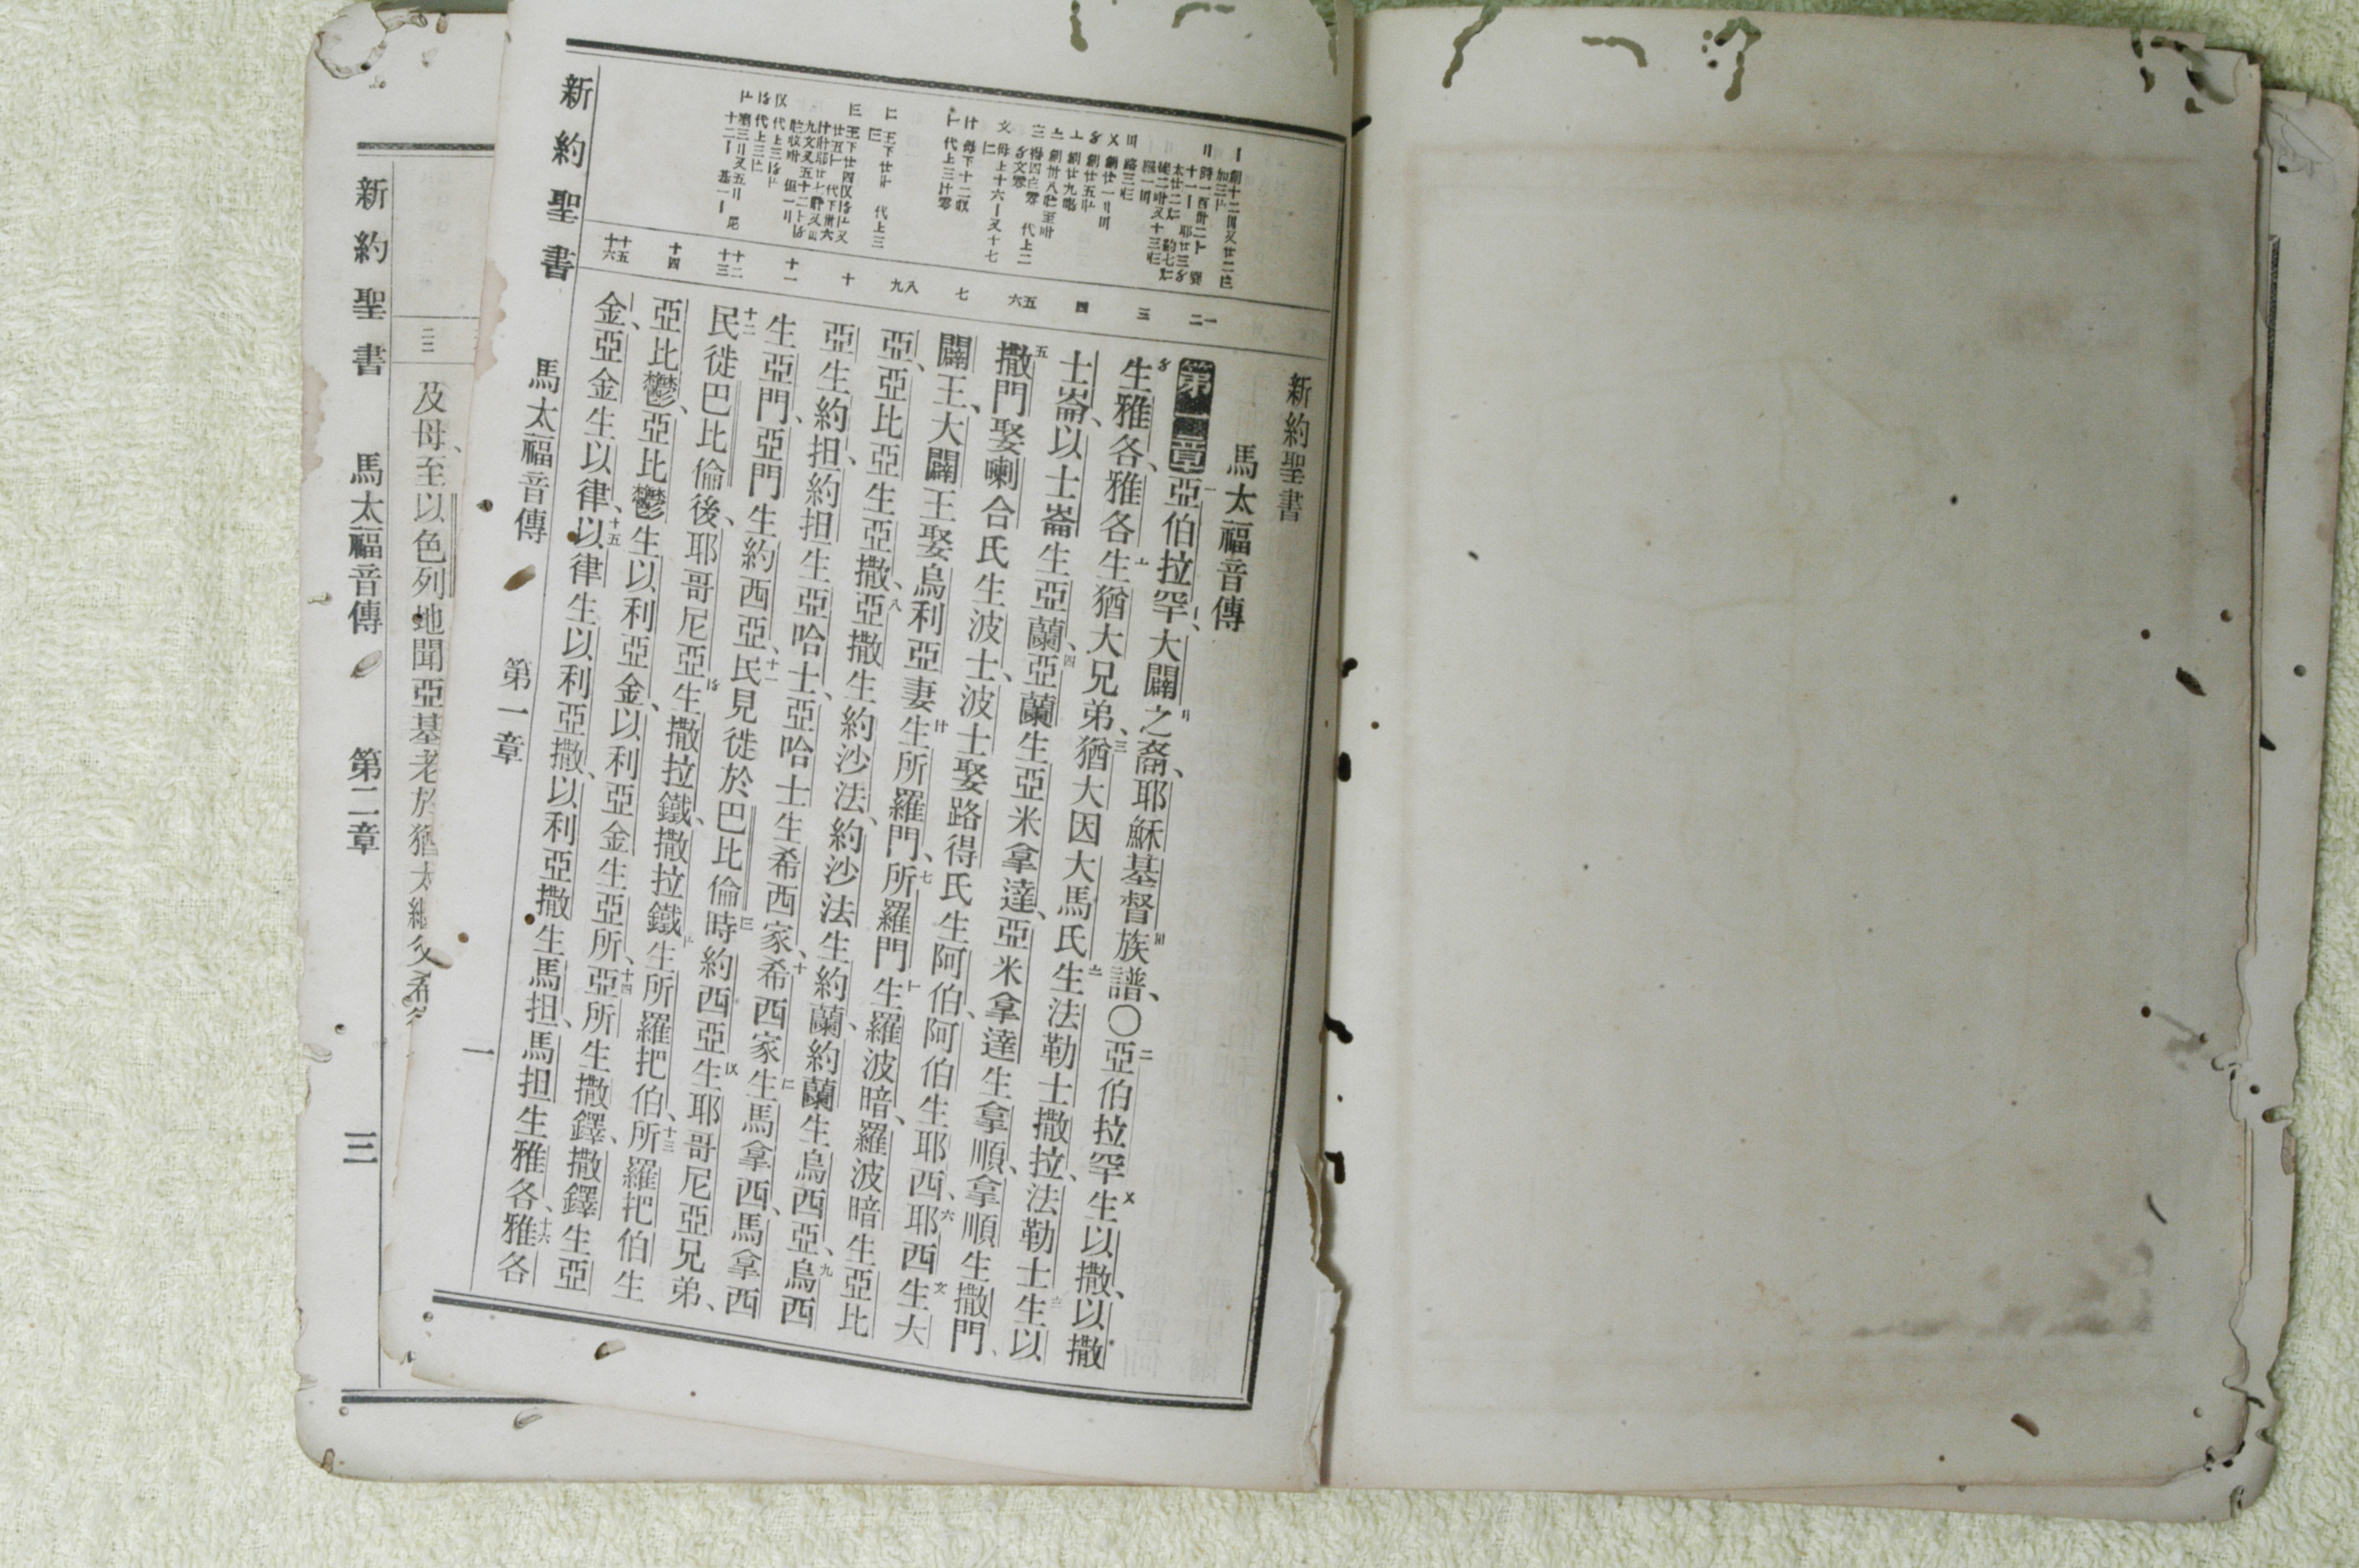 新約聖書
馬太福音傳
第一章 一亞伯拉罕、大闢之裔、耶穌基督族譜、〇二亞伯拉罕生以撒、以撒
生雅各、雅各生猶大兄弟、三猶大因大馬氏生法勒士撒拉、法勒士生以
士崙、以士崙生亞蘭、四亞蘭生亞米拿達、亞米拿達生拿順、拿順生撒門、
五撒門娶喇合氏生波士、波士娶路得氏生阿伯、阿伯生耶西、六耶西生大
闢王、大闢王娶烏利亞妻生所羅門、七所羅門生羅波暗、羅波暗生亞比
亞、亞比亞生亞撒、八亞撒生約沙法、約沙法生約蘭、約蘭生烏西亞、九烏西
亞生約担、約担生亞哈士、亞哈士生希西家、十希西家生馬拿西、馬拿西
生亞門、亞門生約西亞、十一民見徙於巴比倫時約西亞生耶哥尼亞兄弟、
十二民徙巴比倫後、耶哥尼亞生撒拉鐵、撒拉鐵生所羅把伯、十三所羅把伯生
亞比鬱、亞比鬱生以利亞金、以利亞金生亞所、十四亞所生撒鐸、撒鐸生亞
金、亞金生以律、十五以律生以利亞撒、以利亞撒生馬担、馬担生雅各、十六雅各
新約聖書 馬太福音傳 第一章 一
一二 三 四 五六 七 八九 十 十一 十二十三 十四 十五十六
及母、至以色列地聞亞基老於猶太繼父希
新約聖書 馬太福音傳 第二章 三